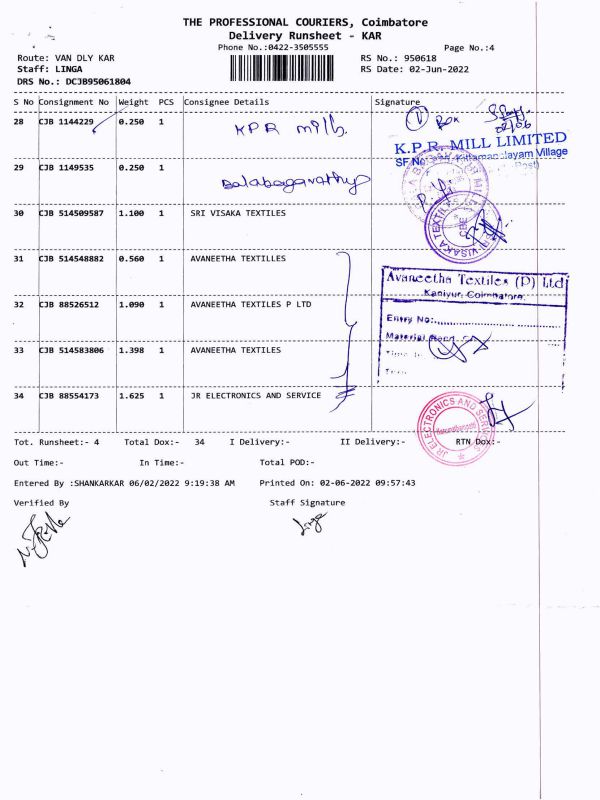 THE PROFESSIONAL COURIERS, Coimbatore
Delivery Runsheet - KAR
Phone No.:0422-3505555
Page No.:4
Route: VAN DLY KAR
RS No.: 950618
Staff: LINGA
RS Date: 02-Jun-2022
DRS No.: DCJB95061804
S No Consignment No Weight PCS Consignee Details Signature
28 CJB 1144229 0.250 1 KPR mills.
1 Box
02/06
K.P.R. MILL LIMITED
29 CJB 1149535 0.250 1 Balabagavathy
30 CJB 514509587 1.100 1 SRI VISAKA TEXTILES
31 CJB 514548882 0.560 1 AVANEETHA TEXTILLES
Avaneetha Textiles (P) Ltd
Kaniyur, Coimbatore.
32 CJB 88526512 1.090 1 AVANEETHA TEXTILES P LTD
Entry No:
33 CJB 514583806 1.398 1 AVANEETHA TEXTILES
34 CJB 88554173 1.625 1 JR ELECTRONICS AND SERVICE
JR ELECTRONICS AND SERVICES
Tot. Runsheet:- 4 Total Dox:- 34 I Delivery:- II Delivery:- RTN Dox:-
Out Time:- In Time:- Total POD:-
Entered By :SHANKARKAR 06/02/2022 9:19:38 AM Printed On: 02-06-2022 09:57:43
Verified By Staff Signature
Linga